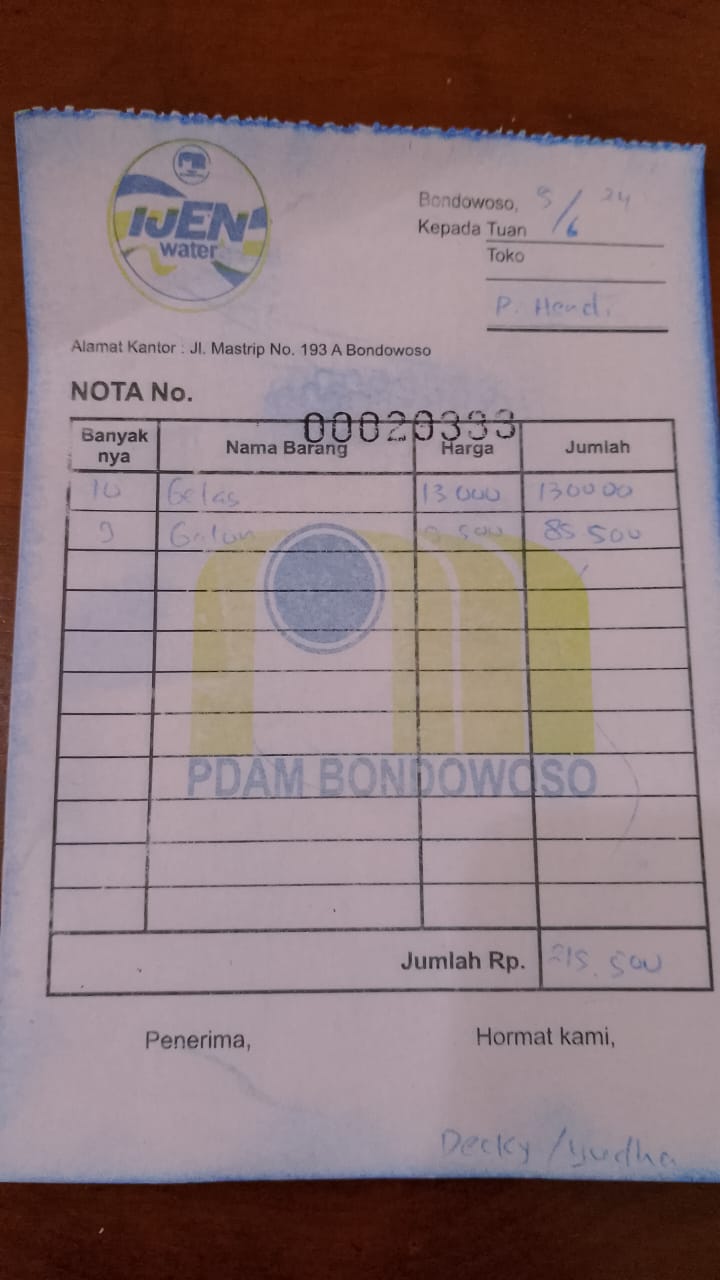 IJEN
water
Bondowoso, 5/6 24
Kepada Tuan
Toko
P. Hendi
Alamat Kantor : Jl. Mastrip No. 193 A Bondowoso
NOTA No.
00020333
Banyak nya Nama Barang Harga Jumlah
10 Gelas 13 000 130000
9 Galon 9 500 85.500
PDAM BONDOWOSO
Jumlah Rp. 215.500
Penerima, Hormat kami,
Decky /yudha